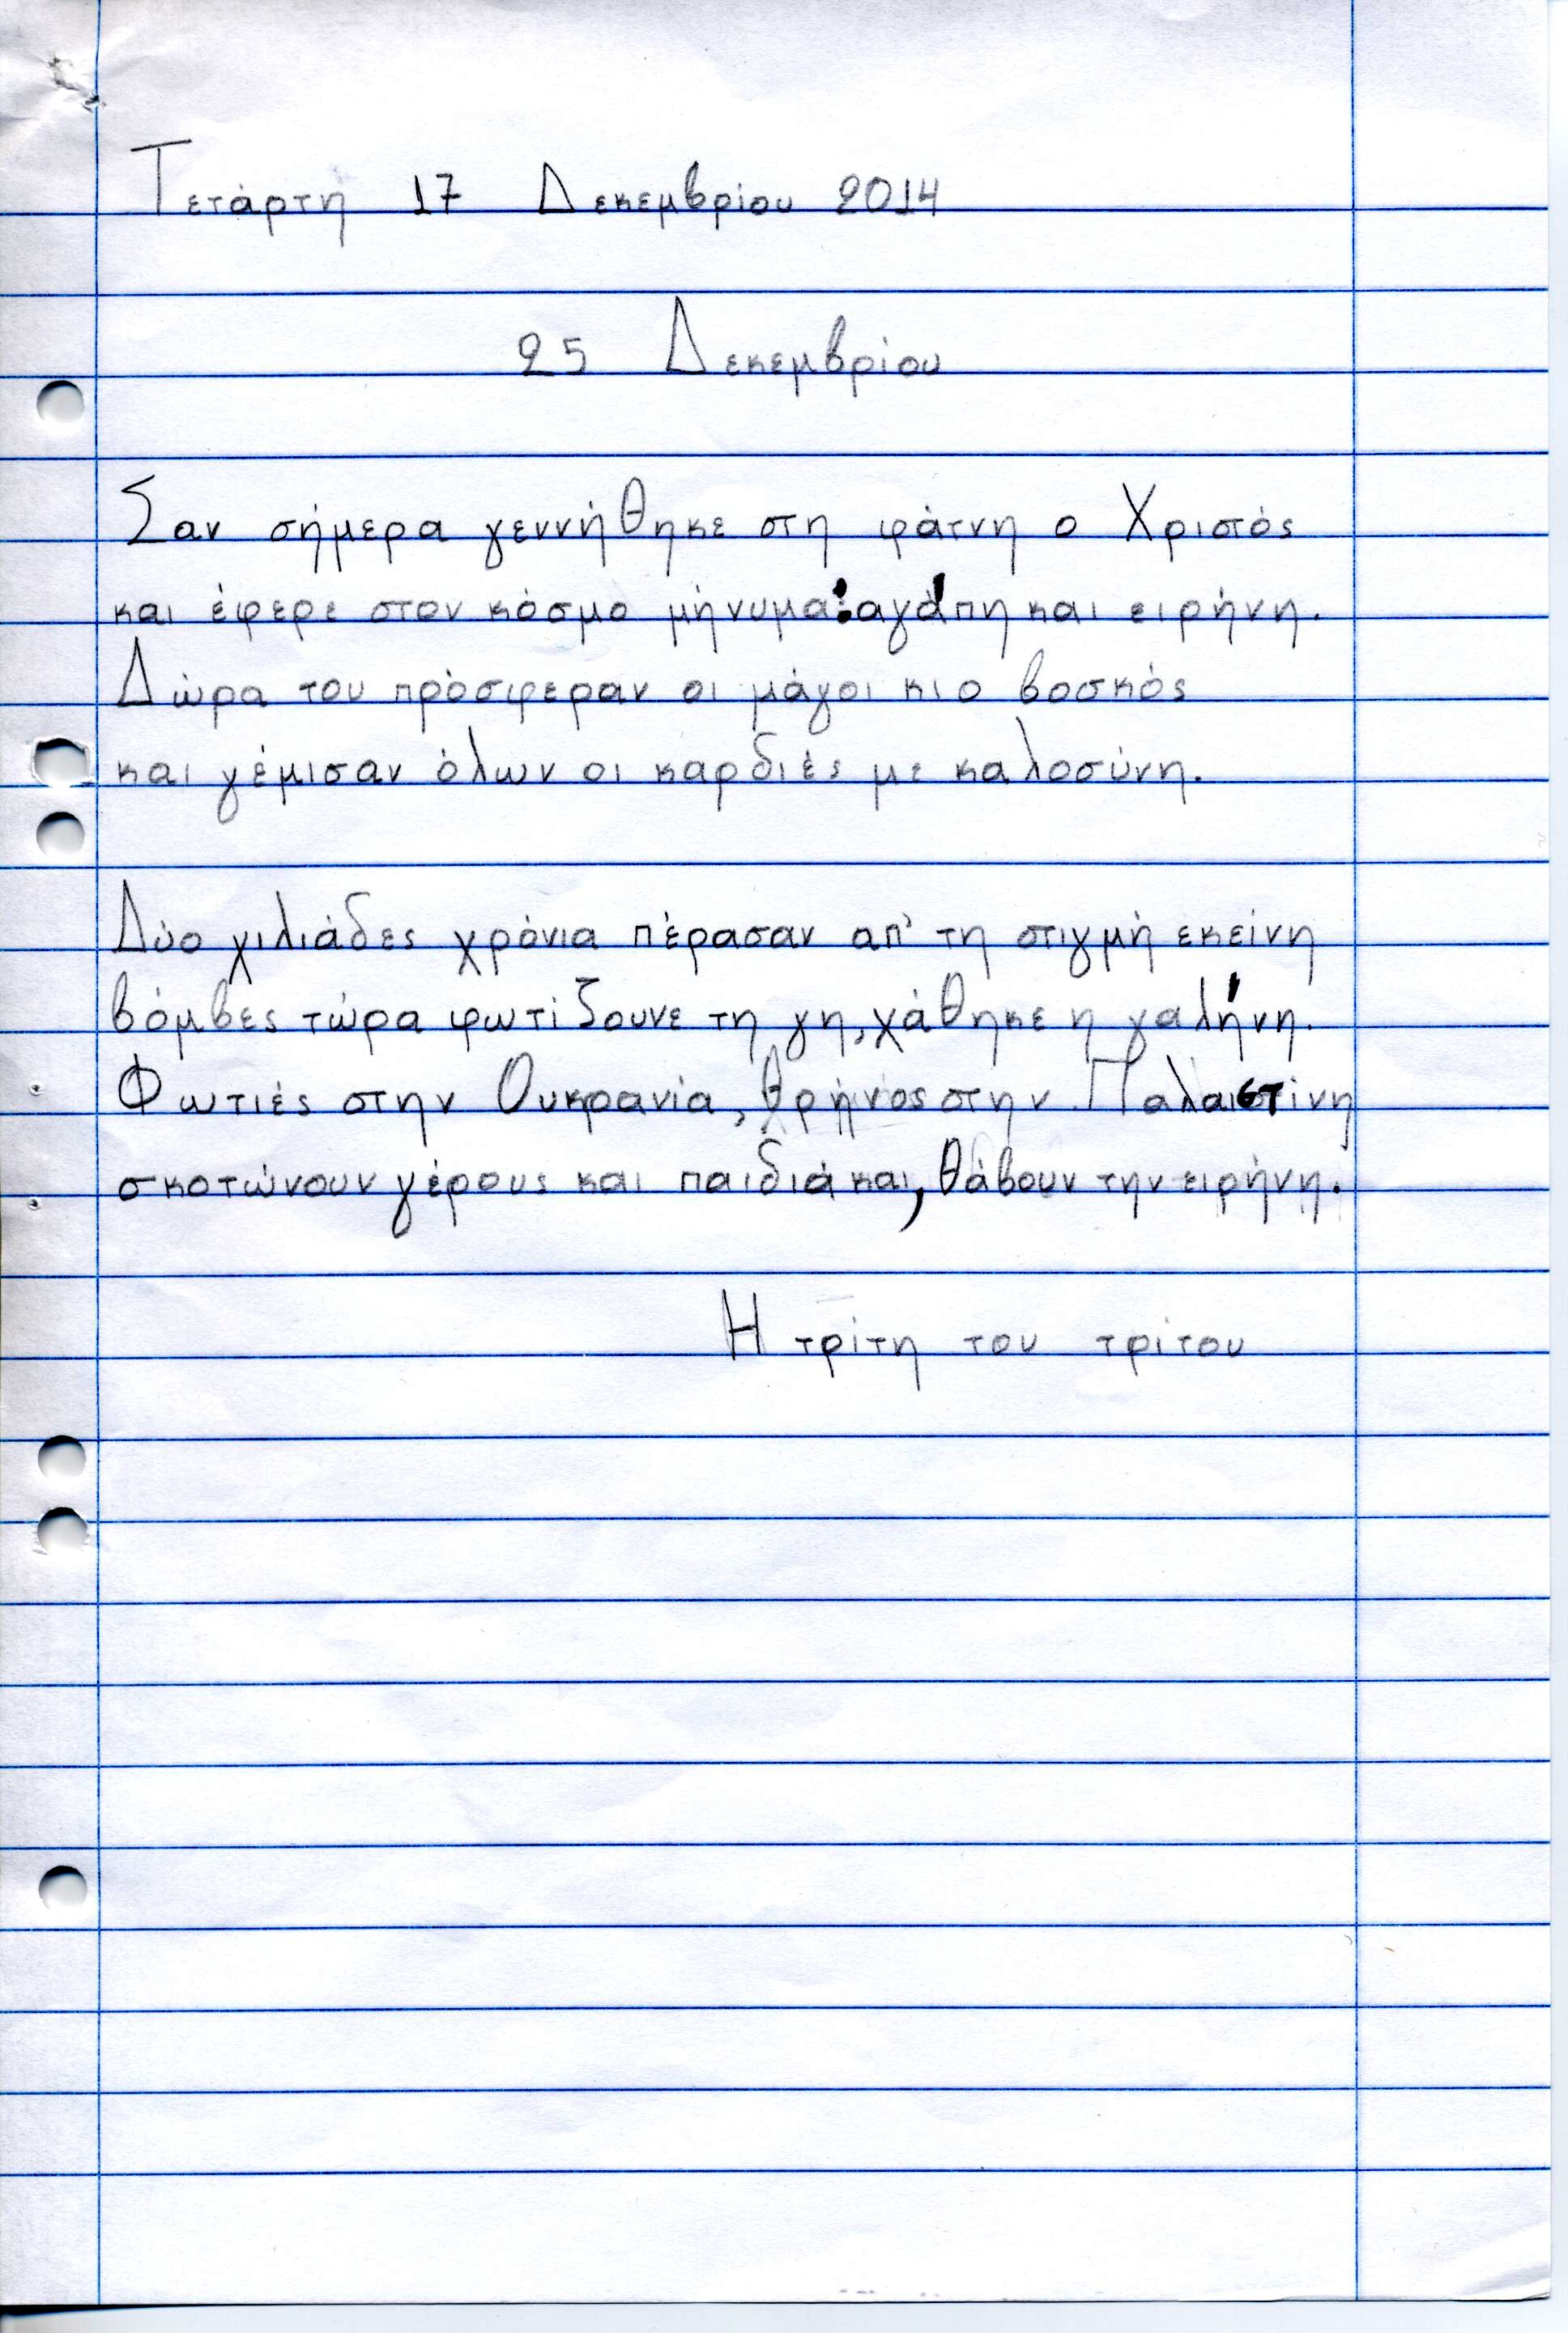 Τετάρτη 17 Δεκεμβρίου 2014
25 Δεκεμβρίου
Σαν σήμερα γεννήθηκε στη φάτνη ο Χριστός
και έφερε στον κόσμο μήνυμα: αγάπη και ειρήνη.
Δώρα του πρόσφεραν οι μάγοι κι ο βοσκός
και γέμισαν όλων οι καρδιές με καλοσύνη.
Δύο χιλιάδες χρόνια πέρασαν απ' τη στιγμή εκείνη
βόμβες τώρα φωτίζουνε τη γη, χάθηκε η γαλήνη.
Φωτιές στην Ουκρανία, θρήνος στην Παλαιστίνη
σκοτώνουν γέρους και παιδιά και, θάβουν την ειρήνη.
Η τρίτη του τρίτου